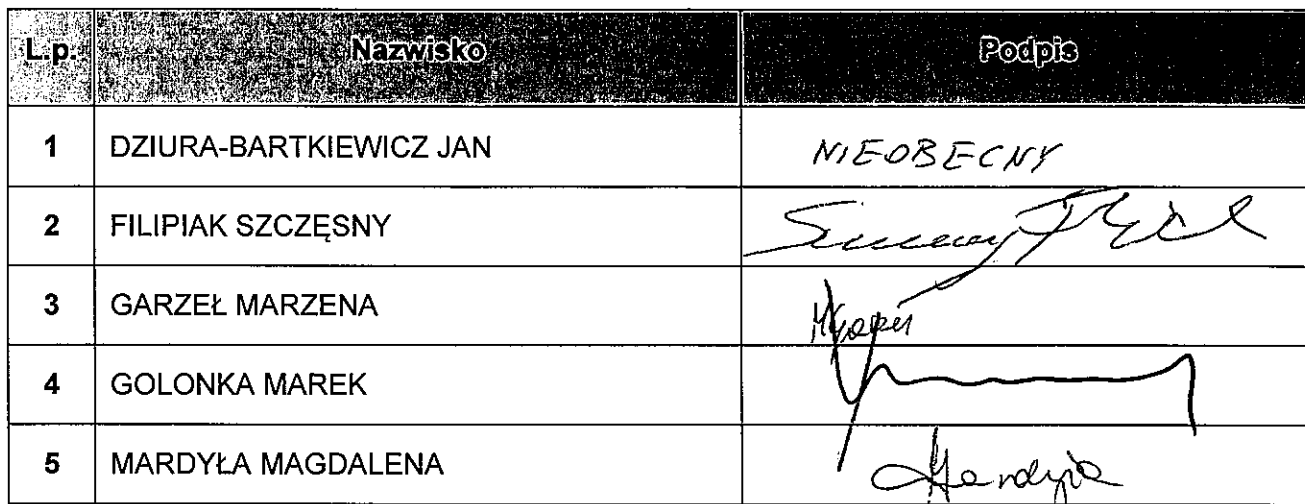 L.p. Nazwisko Podpis
1 DZIURA-BARTKIEWICZ JAN NIEOBECNY
2 FILIPIAK SZCZĘSNY
3 GARZEŁ MARZENA
4 GOLONKA MAREK
5 MARDYŁA MAGDALENA Mardyła